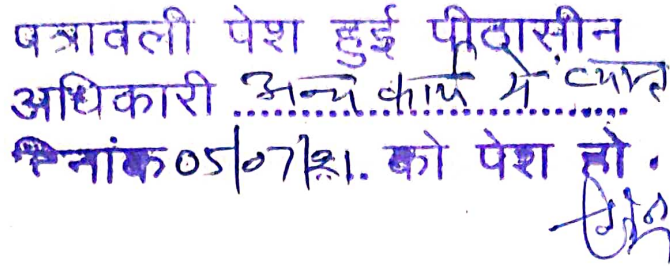 पत्रावली पेश हुई पीठासीन
अधिकारी अन्य कार्य मे व्यस्त
दिनांक 05/07/21. को पेश हो.